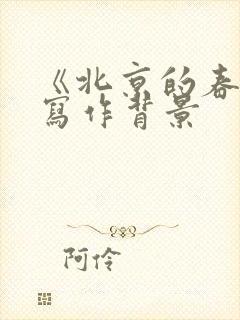 《北京的春
寫作背景
阿伶